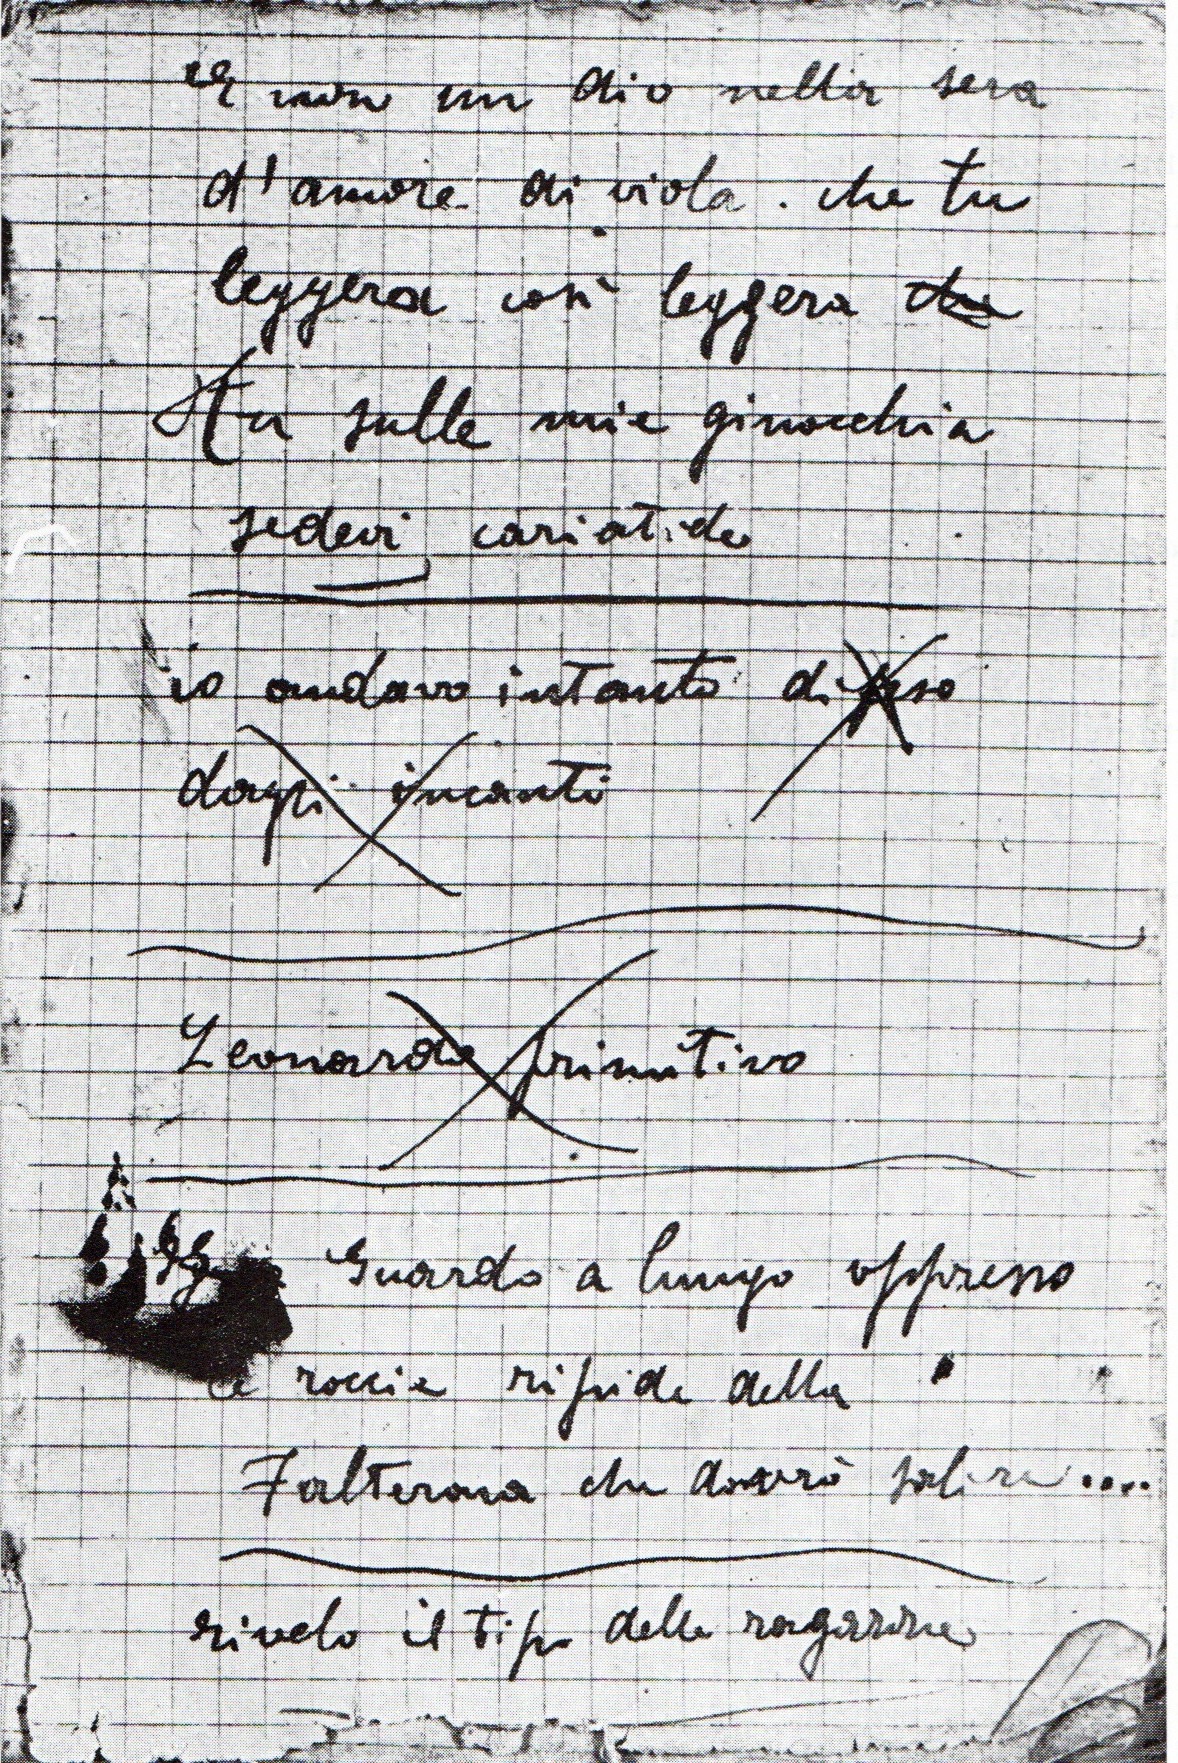 E non un dio nella sera
d'amore di viola . che tu
leggera così leggera che
Tu sulle mie ginocchia
sedevi cariatide
io andavo intanto difeso
dagli incanti
Leonardo primitivo
Guardo a lungo oppresso
le roccie ripide della
Falterona che dovrò salire....
rivelo il tipo delle ragazze